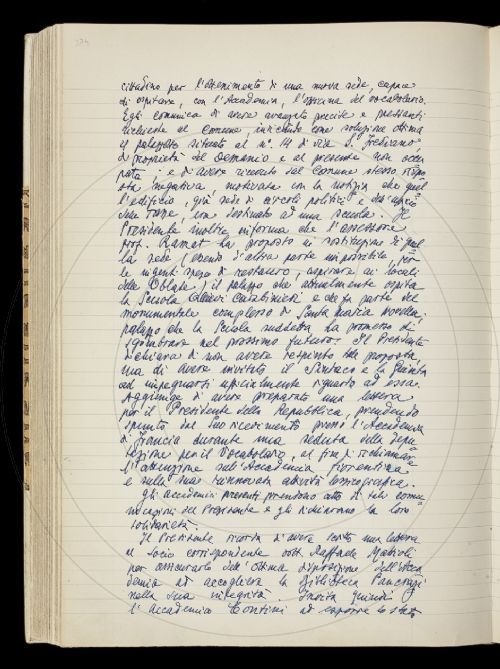 cittadino per l'ottenimento di una nuova sede, capace
di ospitare, con l'Accademia, l'officina del vocabolario.
Egli comunica di avere avanzato precise e pressanti
richieste al Comune, indicando come soluzione ottima
il palazzetto situato al n°. 14 di via S.
di proprietà del Demanio e al presente non occu-
pato; e di avere ricevuto dal Comune stesso rispo-
sta negativa motivata con la notizia che quel-
l'edificio, già sede di circoli politici e
era destinato ad una scuola. Il
Presidente inoltre informa che l'assessore
prof. Ramat ha proposto in sostituzione di quel-
la sede (essendo d'altra parte impossibile, per
le ingenti spese di restauro, aspirare ai locali
delle Oblate) il palazzo che attualmente ospita
la Scuola Allievi Carabinieri e che fa parte del
monumentale complesso di Santa Maria Novella,
palazzo che la Scuola suddetta ha promesso di
sgombrare nel prossimo futuro. Il Presidente
dichiara di non avere respinto tale proposta,
ma di avere invitato il Sindaco e la Giunta
ad impegnarsi ufficialmente riguardo ad essa.
Aggiunge di avere preparato una lettera
per il Presidente della Repubblica, prendendo
spunto dal suo ricevimento presso l'Accademia
di Francia durante una seduta della Depu-
tazione per il Vocabolario, al fine di richiamare
l'attenzione sull'Accademia fiorentina
e sulla sua rinnovata attività lessicografica.
Gli accademici presenti prendono atto di tali comu-
nicazioni del Presidente e gli dichiarano la loro
solidarietà.
Il Presidente ricorda d'avere scritto una lettera
al socio corrispondente dott. Raffaele Mattioli
per assicurarlo dell'ottima disposizione dell'Acca-
demia ad accogliere la Biblioteca Pancrazi
nella sua integrità. Invita quindi
l'Accademico Contini ad esporre lo stato